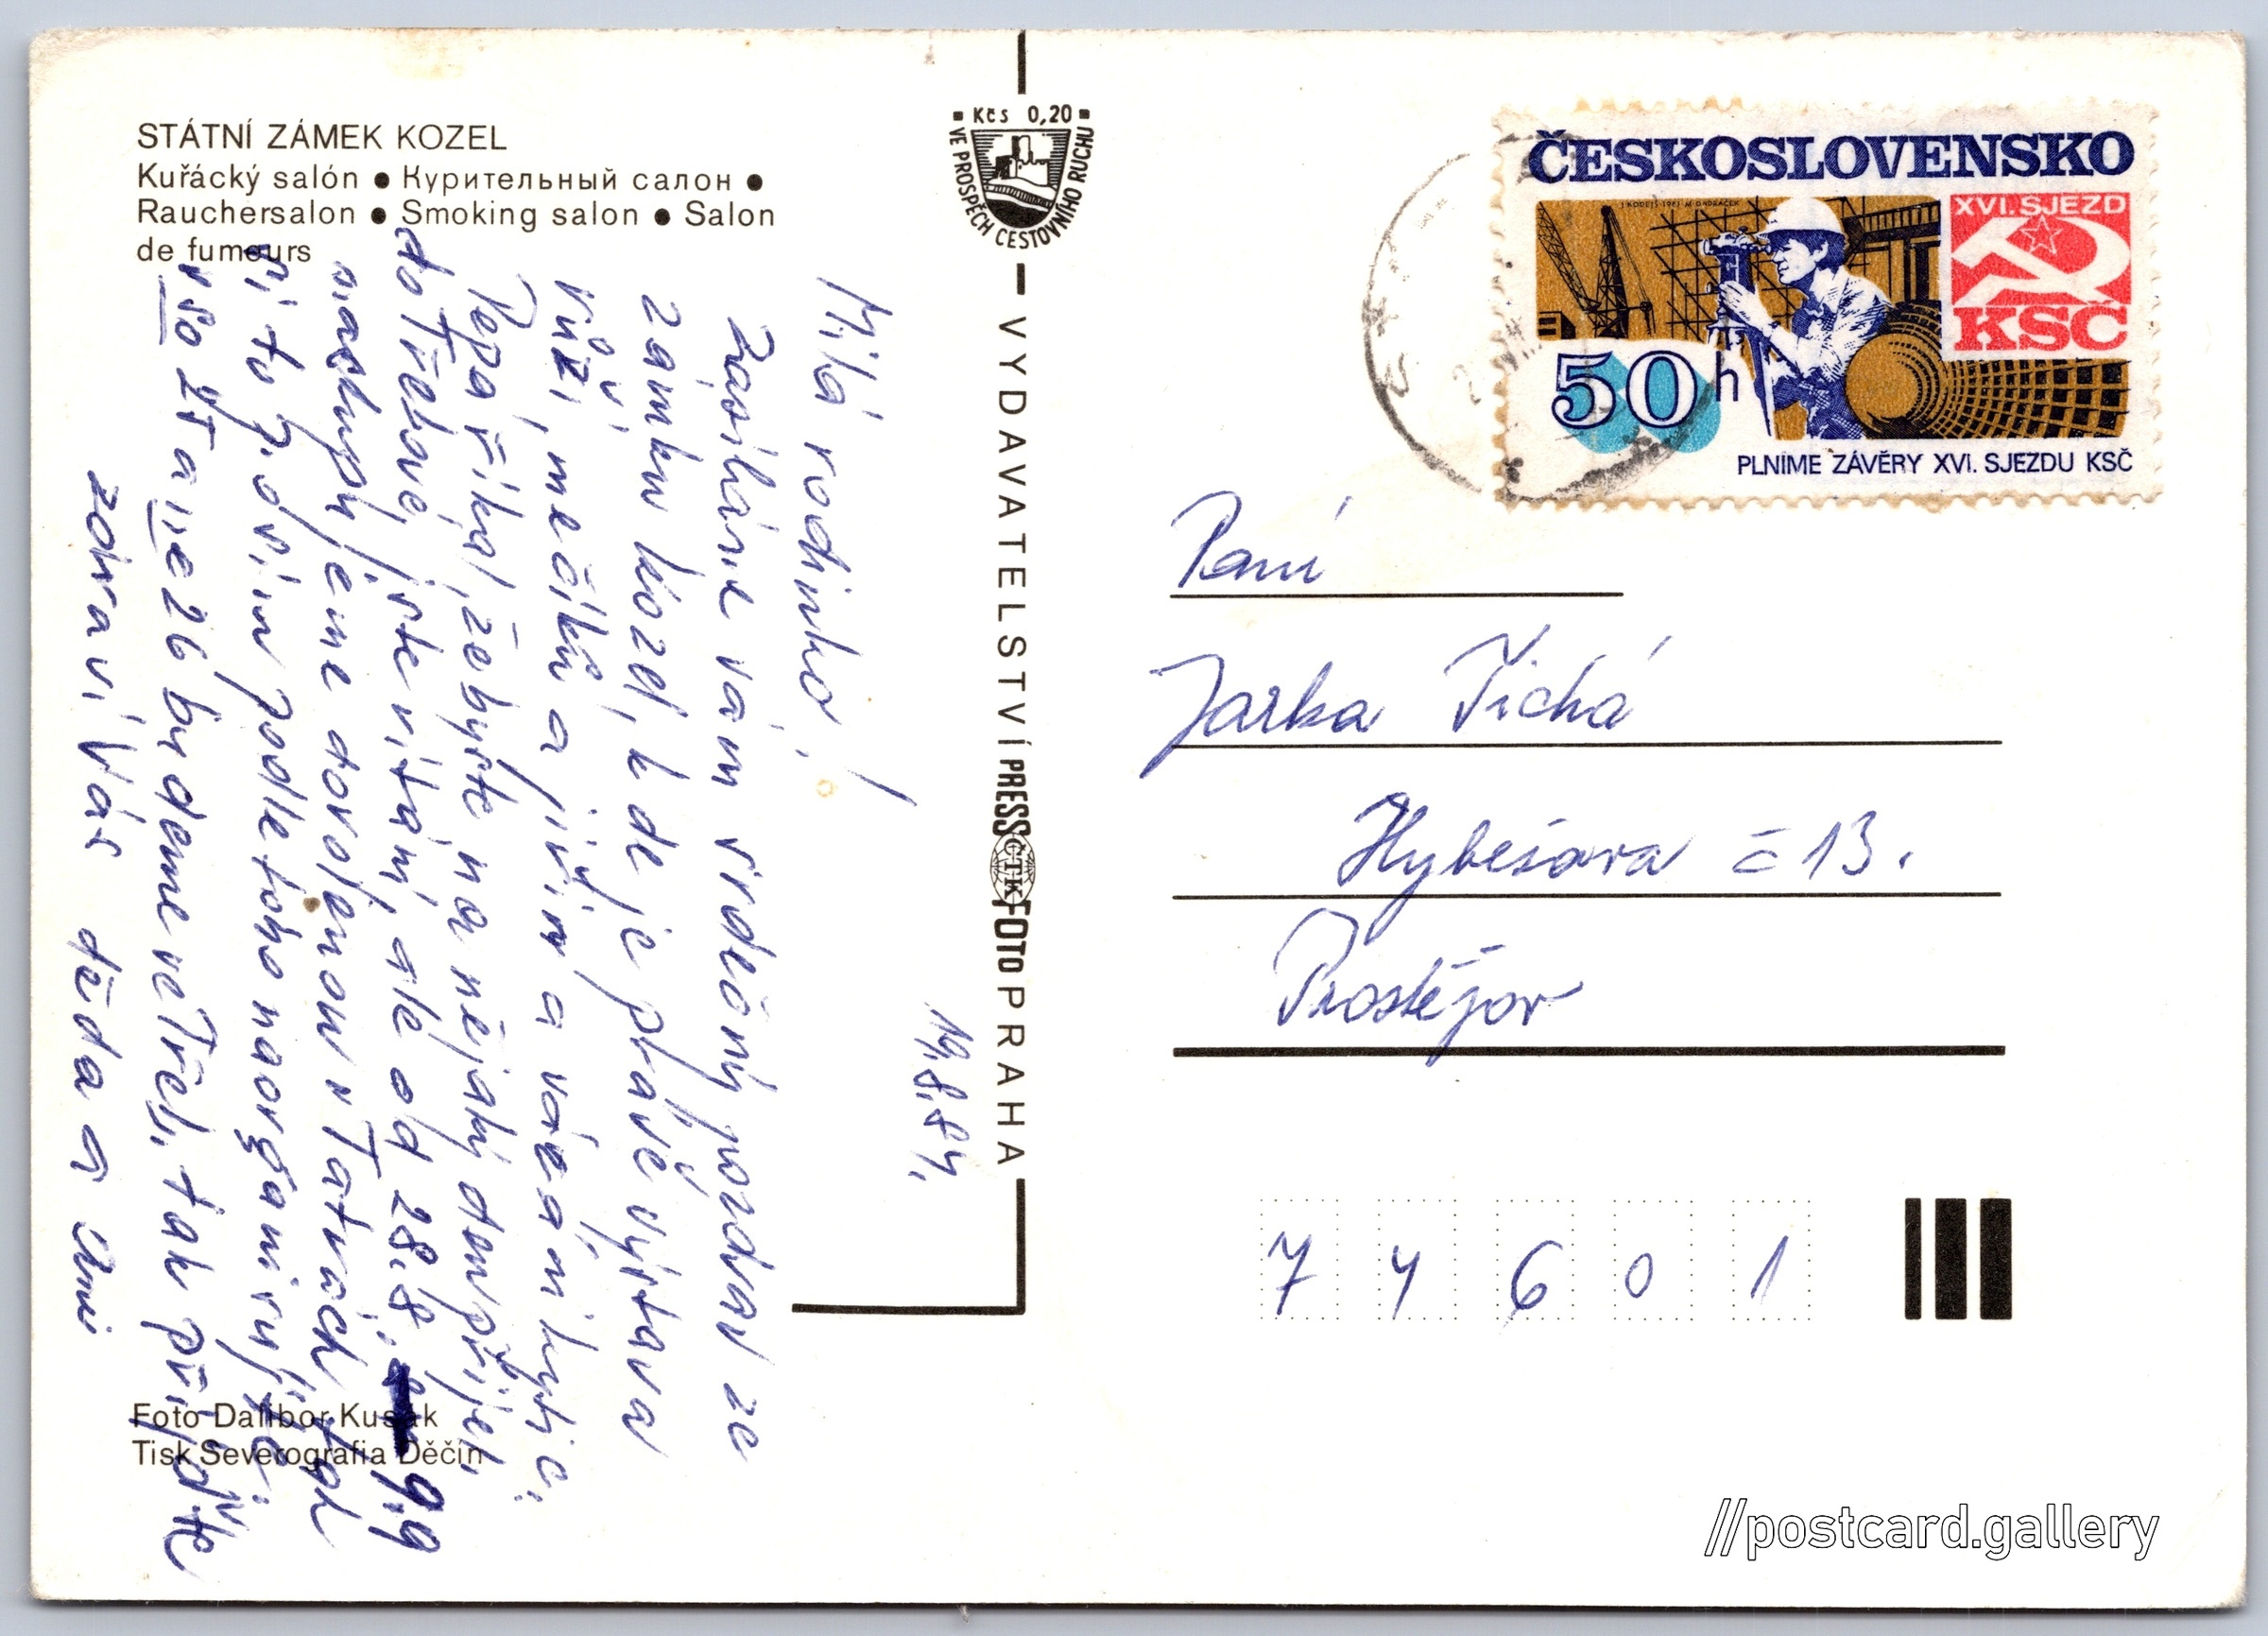 STÁTNÍ ZÁMEK KOZEL
Kuřácký salón ● Курительный салон ●
Rauchersalon ● Smoking salon ● Salon
de fumeurs
19.8.84.
Milá rodinko!
Zasíláme vám srdečný pozdrav ze
zámku Kozel, kde je právě výstava
růží, mečíků a jiřin a vázaní kytic.
Pepa říkal, že byste na nějaký den přijel,
do Třebové, jste vítáni, ale od 28.8. 9.9
nastupujeme dovolenou v Tatrách tak
si to prosím podle toho naorganizujte.
v so 25 a ne 26 budeme ve Třeb. tak přijeďte
zdraví Vás děda a
Foto Dalibor Kusák
Tisk Severografia Děčín
Kčs 0,20
VE PROSPĚCH CESTOVNÍHO RUCHU
VYDAVATELSTVÍ PRESSFOTO PRAHA
ČTK
ČESKOSLOVENSKO
XVI. SJEZD
KSČ
50 h
PLNÍME ZÁVĚRY XVI. SJEZDU KSČ
Paní
Jarka Tichá
Hybešova č 13.
Prostějov
74601
//postcard.gallery